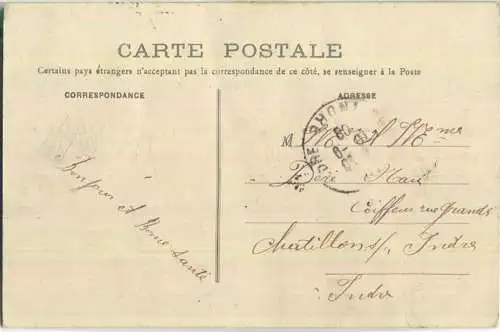 CARTE POSTALE
Certains pays étrangers n'acceptant pas la correspondance de ce côté, se renseigner à la Poste
CORRESPONDANCE
ADRESSE
et Bonne Santé
M
Coiffeur rue Grande
Chatillon s/ Indre
Indre